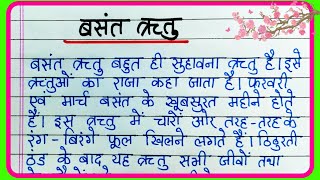 बसंत ऋतु
बसंत ऋतु बहुत ही सुहावना ऋतु है। इसे
ऋतुओं का राजा कहा जाता है। फरवरी
एवं मार्च बसंत के खूबसूरत महीने होते
हैं। इस ऋतु में चारों ओर तरह-तरह के
रंग-बिरंगे फूल खिलने लगते हैं। ठिठुरती
ठंड के बाद यह ऋतु सभी जीवों तथा